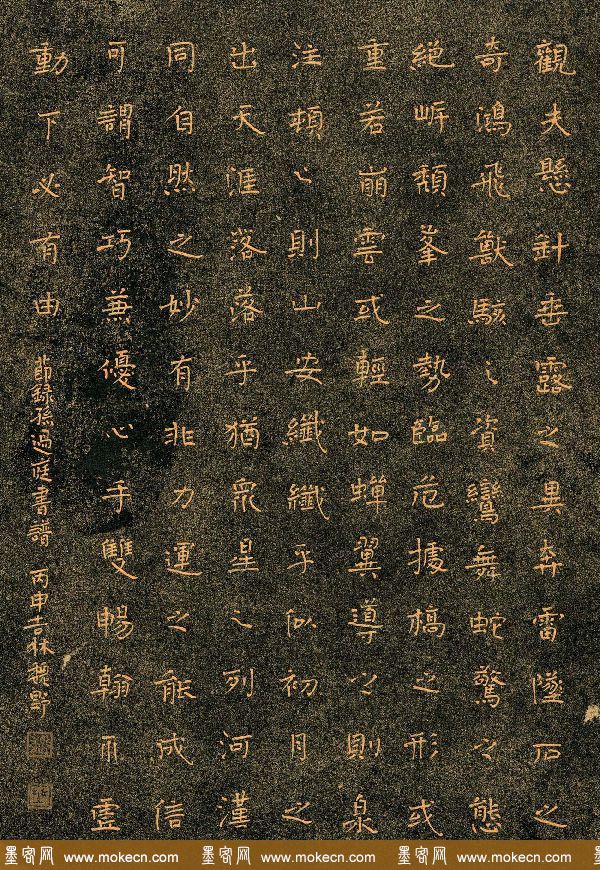 觀夫懸針垂露之異奔雷墜石之
奇鴻飛獸駭之資鸞舞蛇驚之態
絕岸頹峯之勢臨危據槁之形或
重若崩雲或輕如蟬翼導之則泉
注頓之則山安纖纖乎似初月之
出天涯落落乎猶眾星之列河漢
同自然之妙有非力運之能成信
可謂智巧兼優心手雙暢翰不虛
動下必有由
節錄孫過庭書譜 丙申吉林野
墨客网 www.mokecn.com 墨客网 www.mokecn.com 墨客网 www.mokecn.com 墨